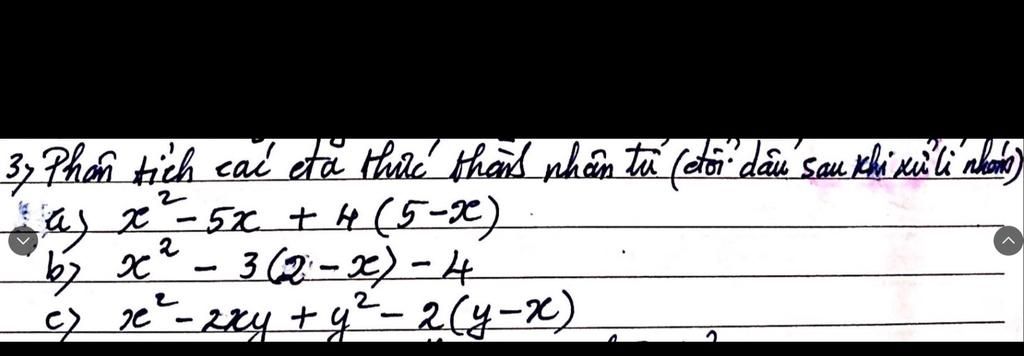 3, Phân tích các đa thức thành nhân tử (đổi dấu sau khi xử lí nhóm)
a) x² - 5x + 4(5-x)
b) x² - 3(2-x) - 4
c) x² - 2xy + y² - 2(y-x)